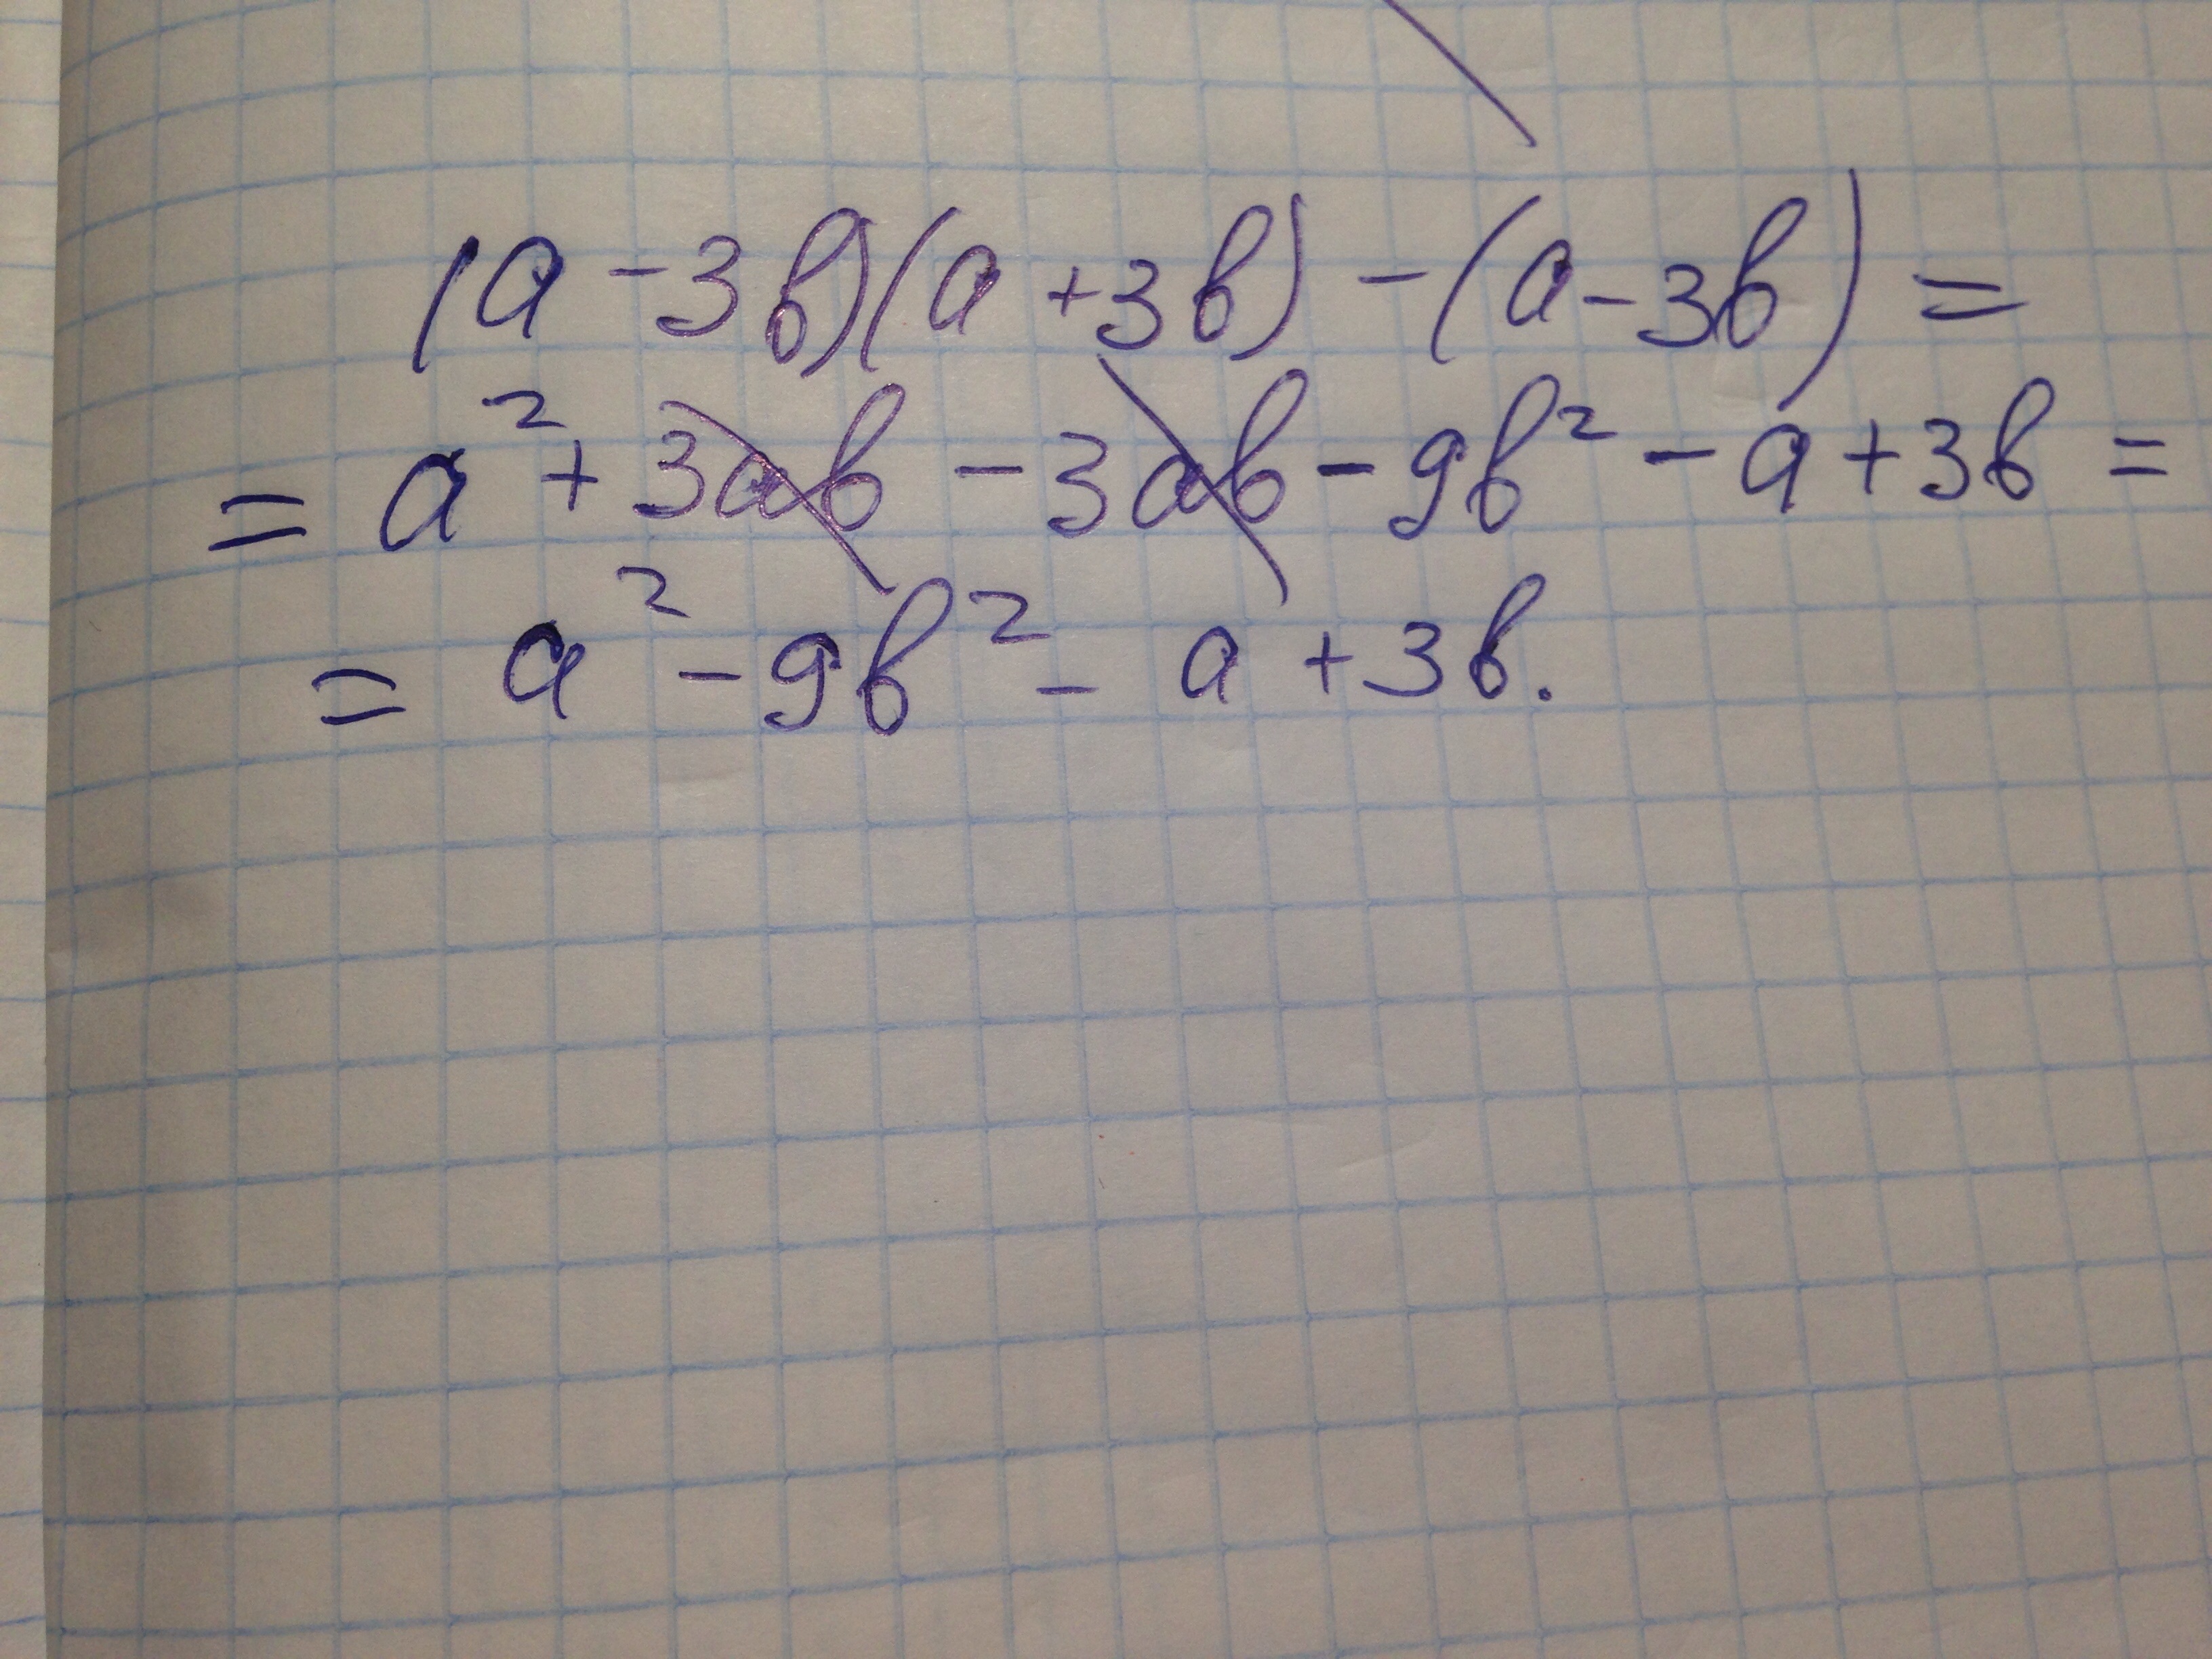 (a - 3b)(a + 3b) - (a - 3b) =
= a² + 3ab - 3ab - 9b² - a + 3b =
= a² - 9b² - a + 3b.